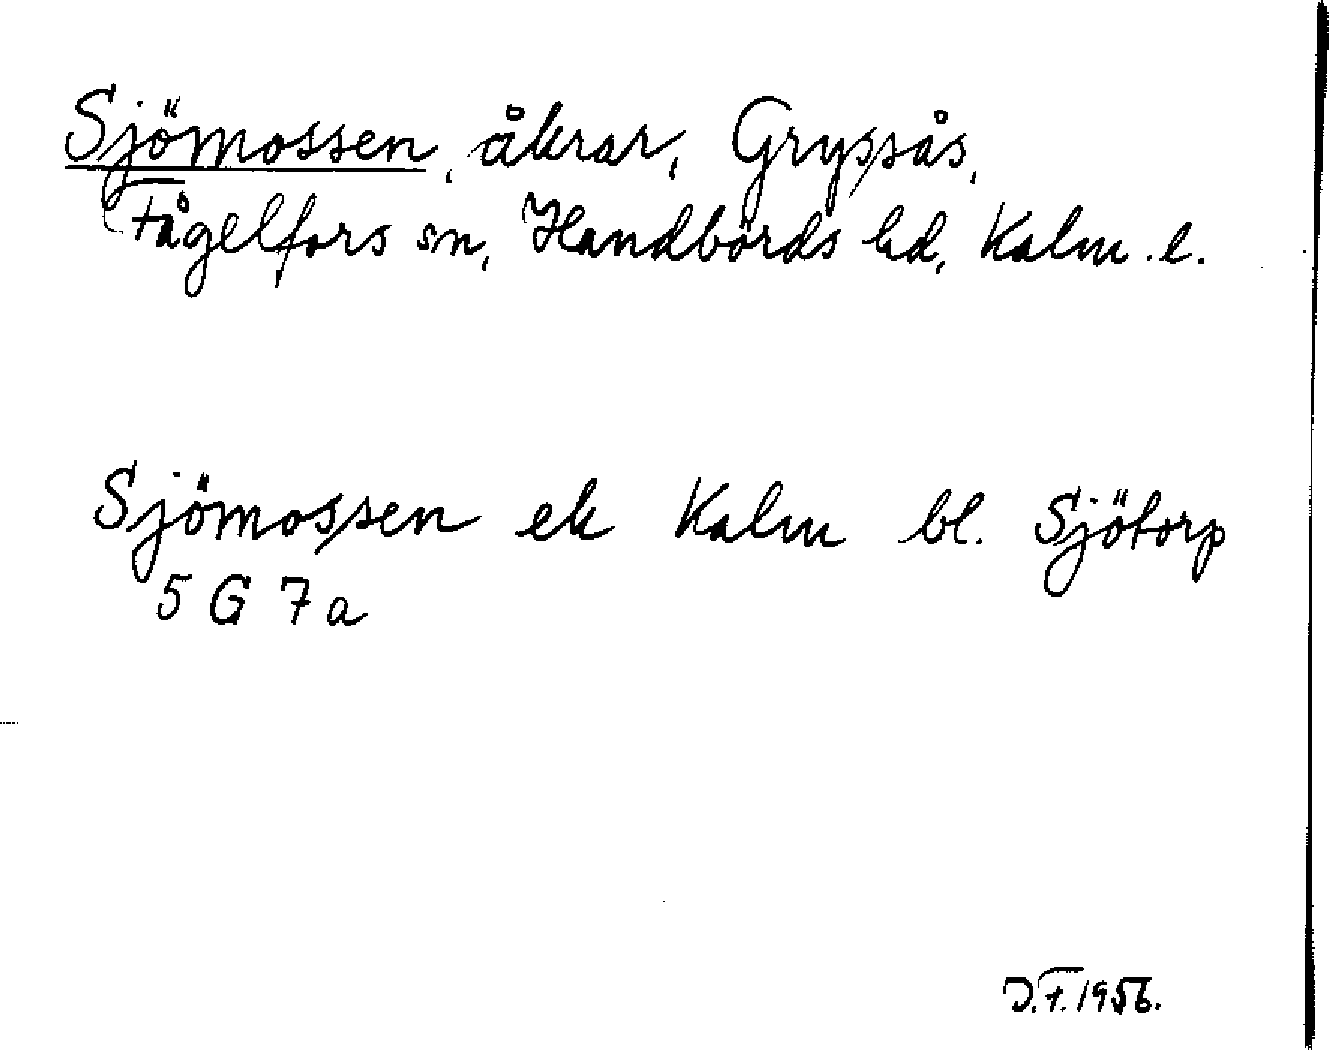 Sjömossen, åkrar, Gryssås,
Fågelfors sn, Handbörds hd, Kalm. l.
Sjömossen ek Kalm bl. Sjötorp
5 G 7 a
D.F. 1956.